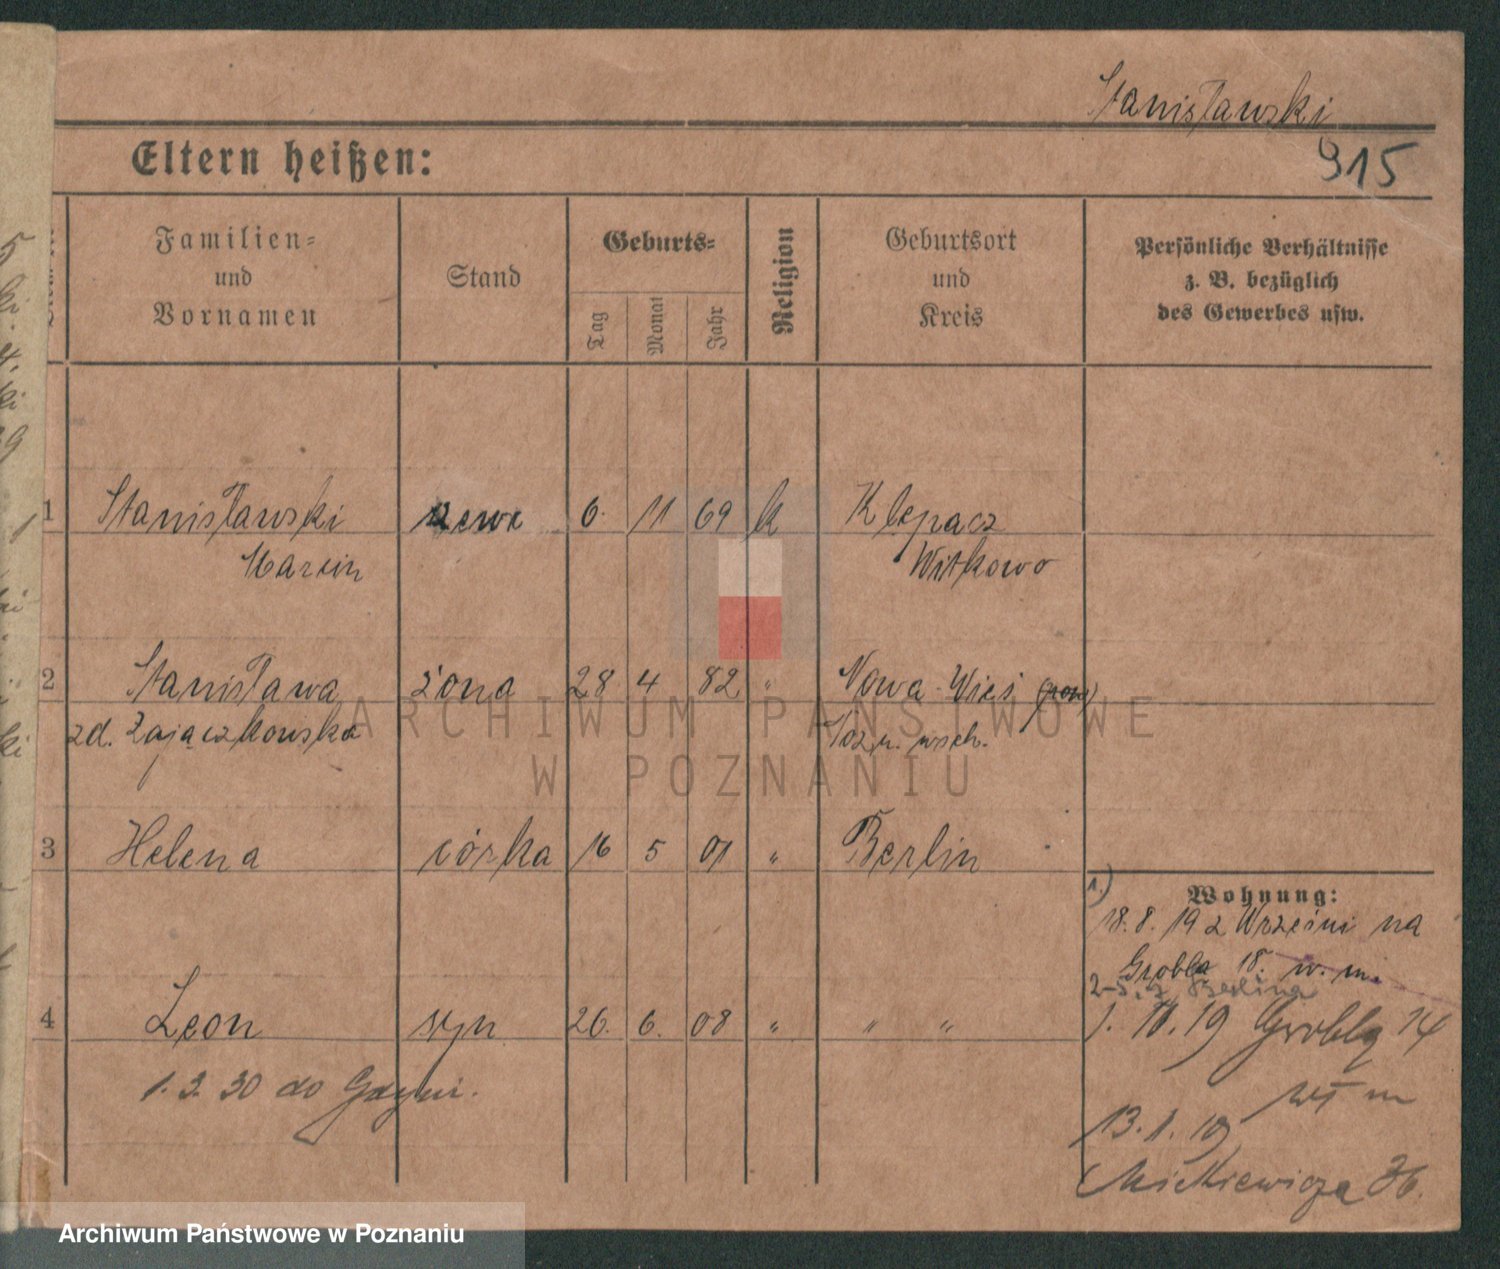 Stanisławski
915
Eltern heißen:
Familien=
und
Vornamen
Stand
Geburts=
Tag
Monat
Jahr
Religion
Geburtsort
und
Kreis
Persönliche Verhältnisse
z. B. bezüglich
des Gewerbes usw.
1 Stanisławski 6. 11 69 k Klepacz
Marcin Witkowo
2 Stanisława żona 28 4 82 " Nowa-Wieś
zd. Zajączkowska
3 Helena córka 16 5 01 " Berlin
4 Leon syn 26. 6. 08 " " "
1. 3. 30 do Gdyni.
1.) Wohnung:
18. 8. 19 z Wrześni na
Grobla 18. w. m.
z Berlina
Groblę 14
13. 1.
Mickiewicza 36.
ARCHIWUM PAŃSTWOWE
W POZNANIU
Archiwum Państwowe w Poznaniu